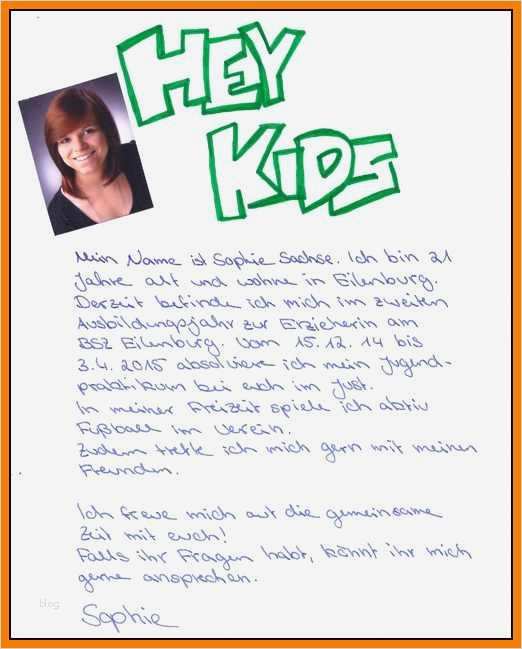 HEY
KIDS
Mein Name ist Sophie Sachse. Ich bin 21
Jahre alt und wohne in Eilenburg.
Derzeit befinde ich mich im zweiten
Ausbildungsjahr zur Erzieherin am
BSZ Eilenburg. Vom 15.12.14 bis
3.4.2015 absolviere ich mein Jugend-
praktikum bei euch im Just.
In meiner Freizeit spiele ich aktiv
Fußball im Verein.
Zudem treffe ich mich gern mit meinen
Freunden.
Ich freue mich auf die gemeinsame
Zeit mit euch!
Falls ihr Fragen habt, könnt ihr mich
gerne ansprechen.
blog
Sophie